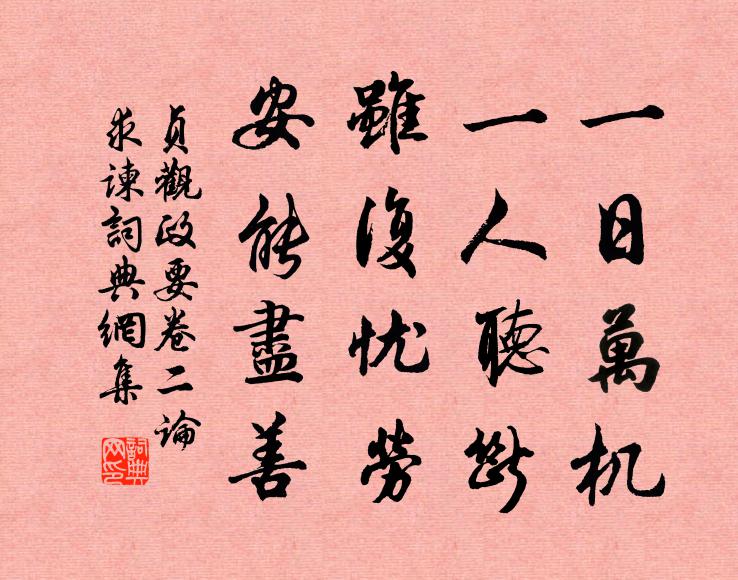 一日萬机
一人聽斷
雖復忧勞
安能盡善
貞觀政要卷二論
求諫詞典網集
詞典网印